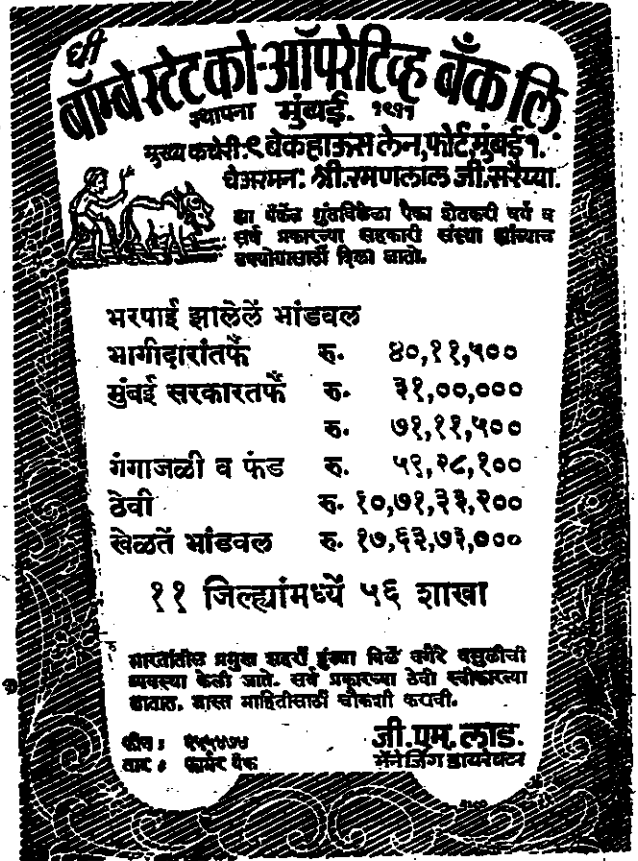 धी
बॉम्बे स्टेट को-ऑपरेटिव्ह बँक लि.
स्थापना मुंबई. १९११
मुख्य कचेरी: ९ बेकहाऊस लेन, फोर्ट, मुंबई १.
चेअरमन: श्री. रमणलाल जी. सरैय्या.
ह्या बँकेंत गुंतविलेला पैसा शेतकरी वर्ग व
सर्व प्रकारच्या सहकारी संस्था ह्यांच्याच
उपयोगासाठीं दिला जातो.
भरपाई झालेलें भांडवल
भागीदारांतर्फे रु. ४०,११,५००
मुंबई सरकारतर्फे रु. ३१,००,०००
रु. ७१,११,५००
गंगाजळी व फंड रु. ५९,२८,१००
ठेवी रु. १०,७१,३३,२००
खेळतें भांडवल रु. १७,६३,७३,०००
११ जिल्ह्यांमध्यें ५६ शाखा
भारतांतील प्रमुख शहरीं हुंड्या बिलें वगैरे वसुलीची
व्यवस्था केली जाते. सर्व प्रकारच्या ठेवी स्वीकारल्या
जातात. जास्त माहितीसाठीं चौकशी करावी.
फोन :
तार : फार्मर बँक
जी. एम. लाड.
मॅनेजिंग डायरेक्टर